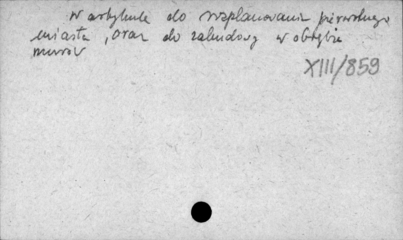 w artykule do rozplanowania pierwotnego
miasta, oraz do zabudowy w obrębie
murów
XIII/859